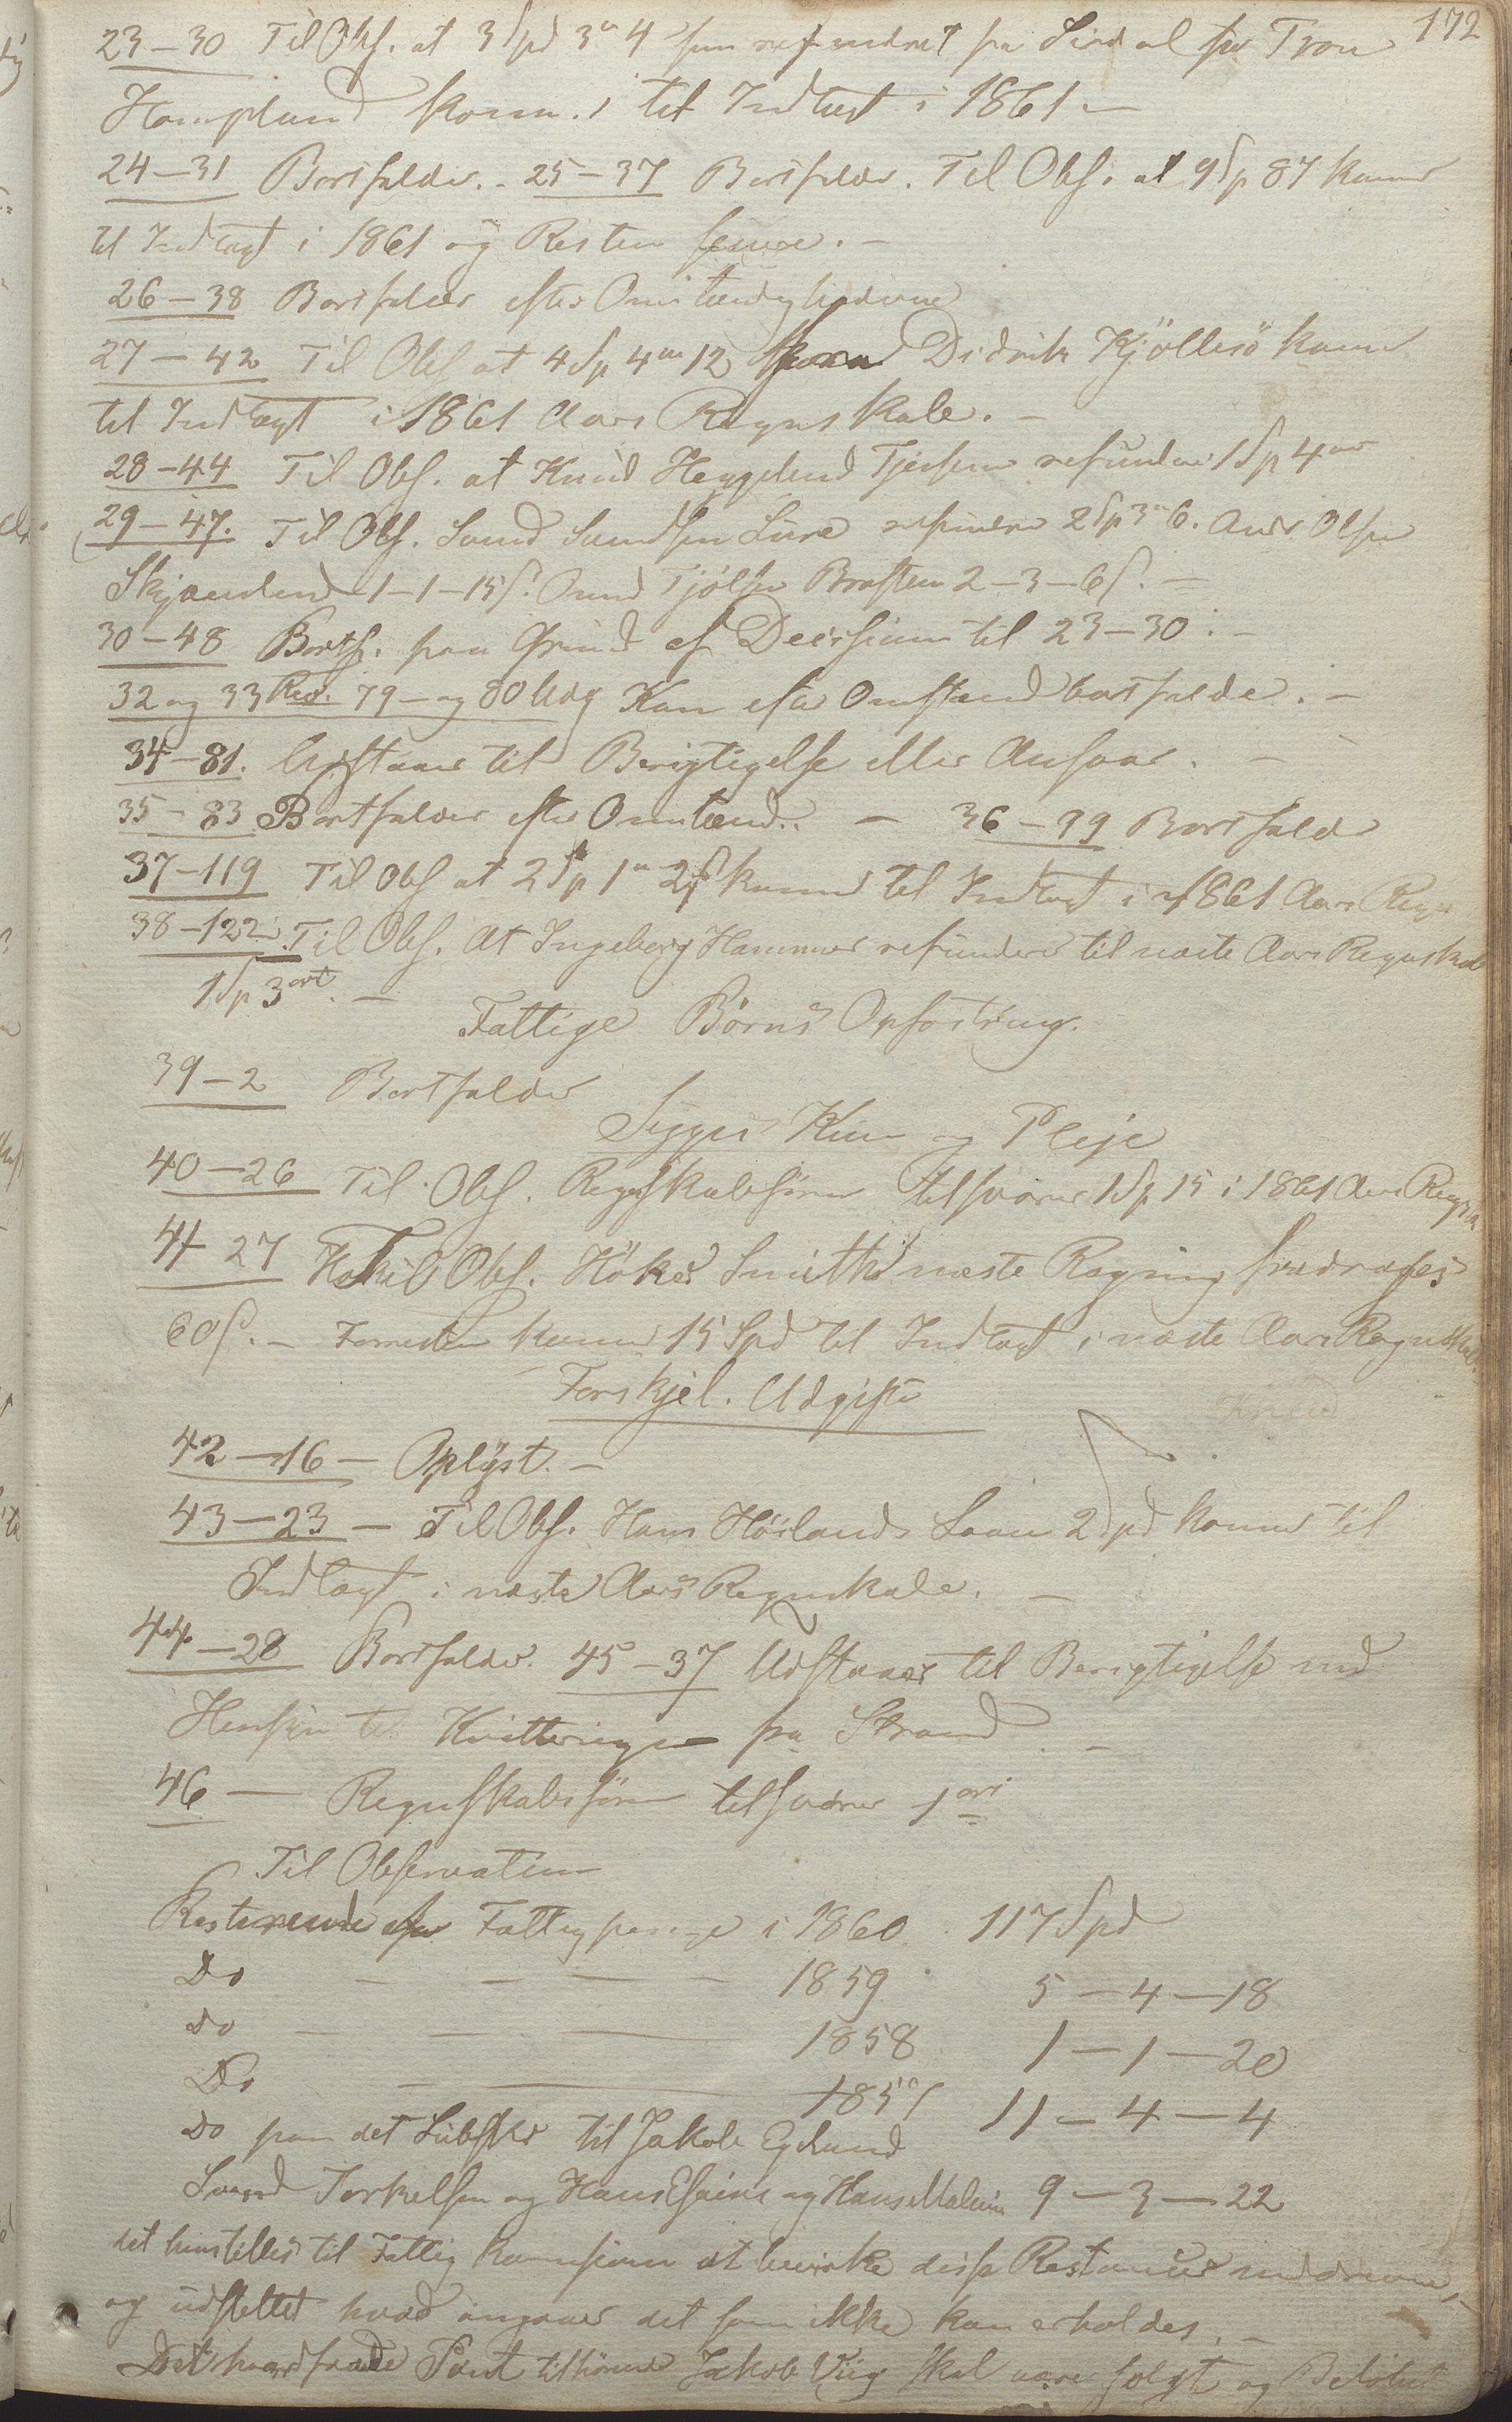 172
23–30 Til Obs. at 3 Spd 3 4 som refunderet fra Sirdal for Tron
Hompland kom. i til Indtægt i 1861 –
24–31 Bortfalder. – 25–37 Bortfalder. Til Obs. at 9 Sp 87 kommer
til Indtægt i 1861 og Resten senere. –
26–38 Bortfalder efter Omstændighederne
27–42 Til Obs at 4 Sp 4 12 Didrik Kjöllesö kommer
til Indtægt i 1861 Aars Regnskab. –
28–44 Til Obs. at Knud Heggelund Tjersen refunderer 1 Sp 4
29–47. Til Obs. Svend Svendsen Lura refunderer 2 Sp 3 6. Andr Olsen
1–1–15 s. Onund 2–3–6 s. –
30–48 Bortf. paa Grund af Decisionen til 23–30. –
32 og 33 Rev. 79 – og 80 Udg Kan efter Omstænd bortfalde. –
34–81. Udstaaer til Berigtigelse eller Ansvar. –
35–83 Bortfalder efter Omstænd. – 36–99 Bortfalder
37–119 Til Obs at 2 Sp 1 2 s kommer til Indtægt i 1861 Aars Regn
38–122 Til Obs. At Ingeborg Hammer refunderer til næste Aars Regnskab
1 Sp 3 ort. –
Fattige Börns Opfostring.
39–2 Bortfalder
Syges Kur og Pleje
40–26 Til Obs. Regnskabsförer tilsvarer 1 Sp 15 i 1861 Aars Regn
41 27 Til Obs. Höker Smiths næste Regning fradrages
60 s. – Forresten kommer 15 Spd til Indtægt i næste Aars Regnskab
Forskjel. Udgifter
42–16 – Oplyst. –
43–23 – Til Obs. Hans Höilands Laan 2 Spd kommer til
Indtægt i næste Aars Regnskab. –
44–28 Bortfalder. 45–37 Udstaaer til Berigtigelse med
Hensyn til Kvitteringen fra Strand. –
46 – Regnskabsförer tilsvarer 1 ort
Til Observation
Resterende af Fattigpenge i 1860 117 Spd
Do – – – – 1859 5–4–18
Do – – – 1858 1–1–20
Do – – 1857 11–4–4
Do paa det Lübske til Jakob Egelund
Svend Torkelsen og Hans og Hans 9–3–22
det henstilles til Fattig Kommisionen at indvirke disse Restancer inddrevne,
og udslettet hvad angaaer det som ikke kan erholdes. –
Det Pant tilhörende Jakob Viig skal være solgt og Belöbet